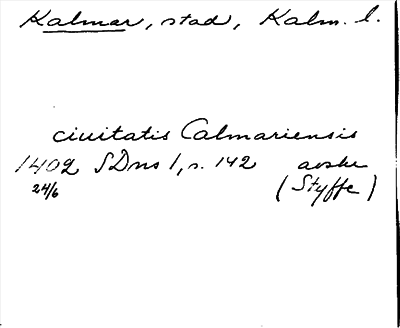 Kalmar, stad, Kalm. l.
ciuitatis Calmariensis
1402 SDns 1, s. 142 avskr
24/6 (Styffe)